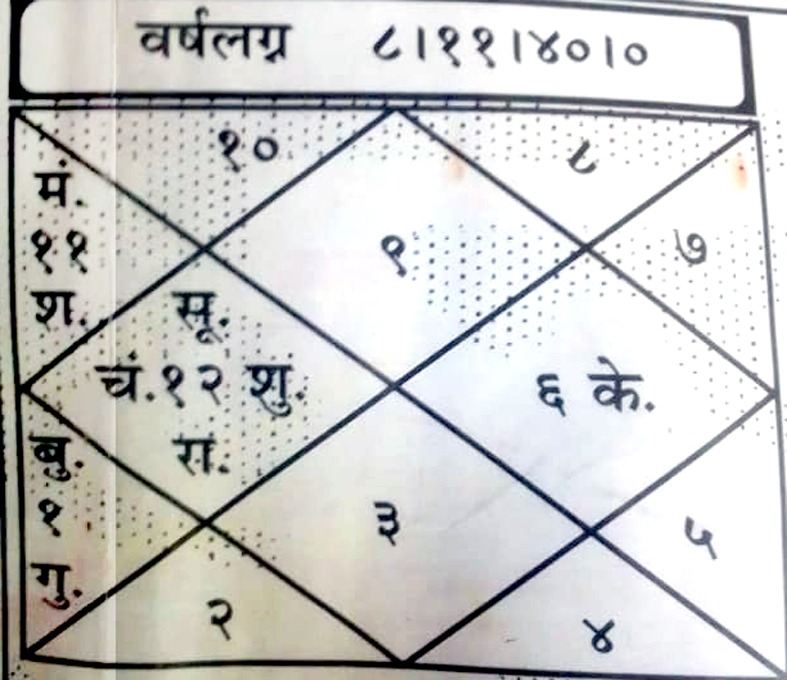 वर्षलग्न ८।११।४०।०
१०
८
मं.
११
श.
९
७
सू.
चं.१२ शु.
रा.
६ के.
बु.
१
गु.
३
५
२
४